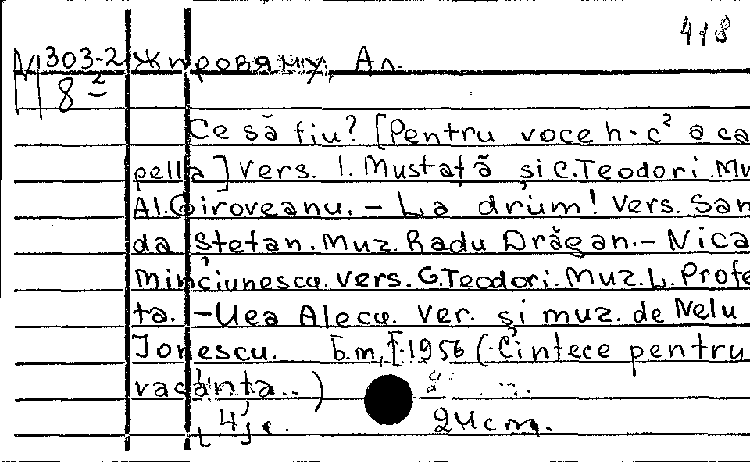 418
М 303-2 Жировяну, Ал.
8 2
Ce să fiu? [Pentru voce h. c² a ca
pella] Vers. I. Mustață și C. Teodori Mu
Al. Giroveanu. - La drum! Vers. San
da Stefan. Muz. Radu Drăgan. - Nica
Minciunescu. Vers. G. Teodori. Muz. L. Profe
ta. - Uca Alecu. Ver. și muz. de Nelu
Ionescu. Б.м, 1956 (Cîntece pentru
vacánta..)
24cm.